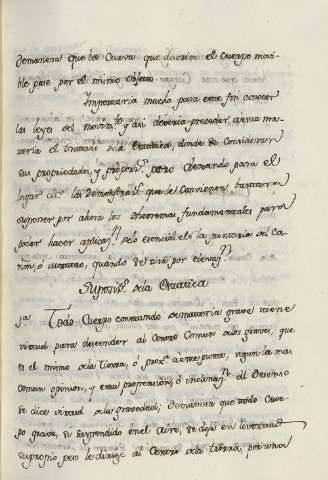 demanera que la Curva que descrive el cuerpo movi-
ble pase por el mismo objeto.
Importaria mucho para este fin conocer
las leyes del movim.to y asi deveria preceder a esta ma-
teria el tratado de la Estatica, donde se consideran
sus propriedades, y proporc.s pero dexando para el
lugar las demostrac.s que le convienen bastara
suponer por ahora los theoremas fundamentales para
poder hacer aplicaz.n de lo esencial a la punteria del Ca-
ñon, o mortero, quando se tira por elevaz.n
Suposic.s de la Estatica
1a. Todo Cuerpo comando de materia grave tiene
virtud para descender al Centro Comun de los graves, que
es el mismo de la tierra, ó prox.o a este punto, segun la mas
comun opinion, y esta propension, ó inclinaz.n al descenso
se dice virtud de la gravedad; demanera que todo Cuer-
po grave, si suspendido en el Aire, se dexa en livertad
su proprio peso le dirige al Centro de la tierra, por una